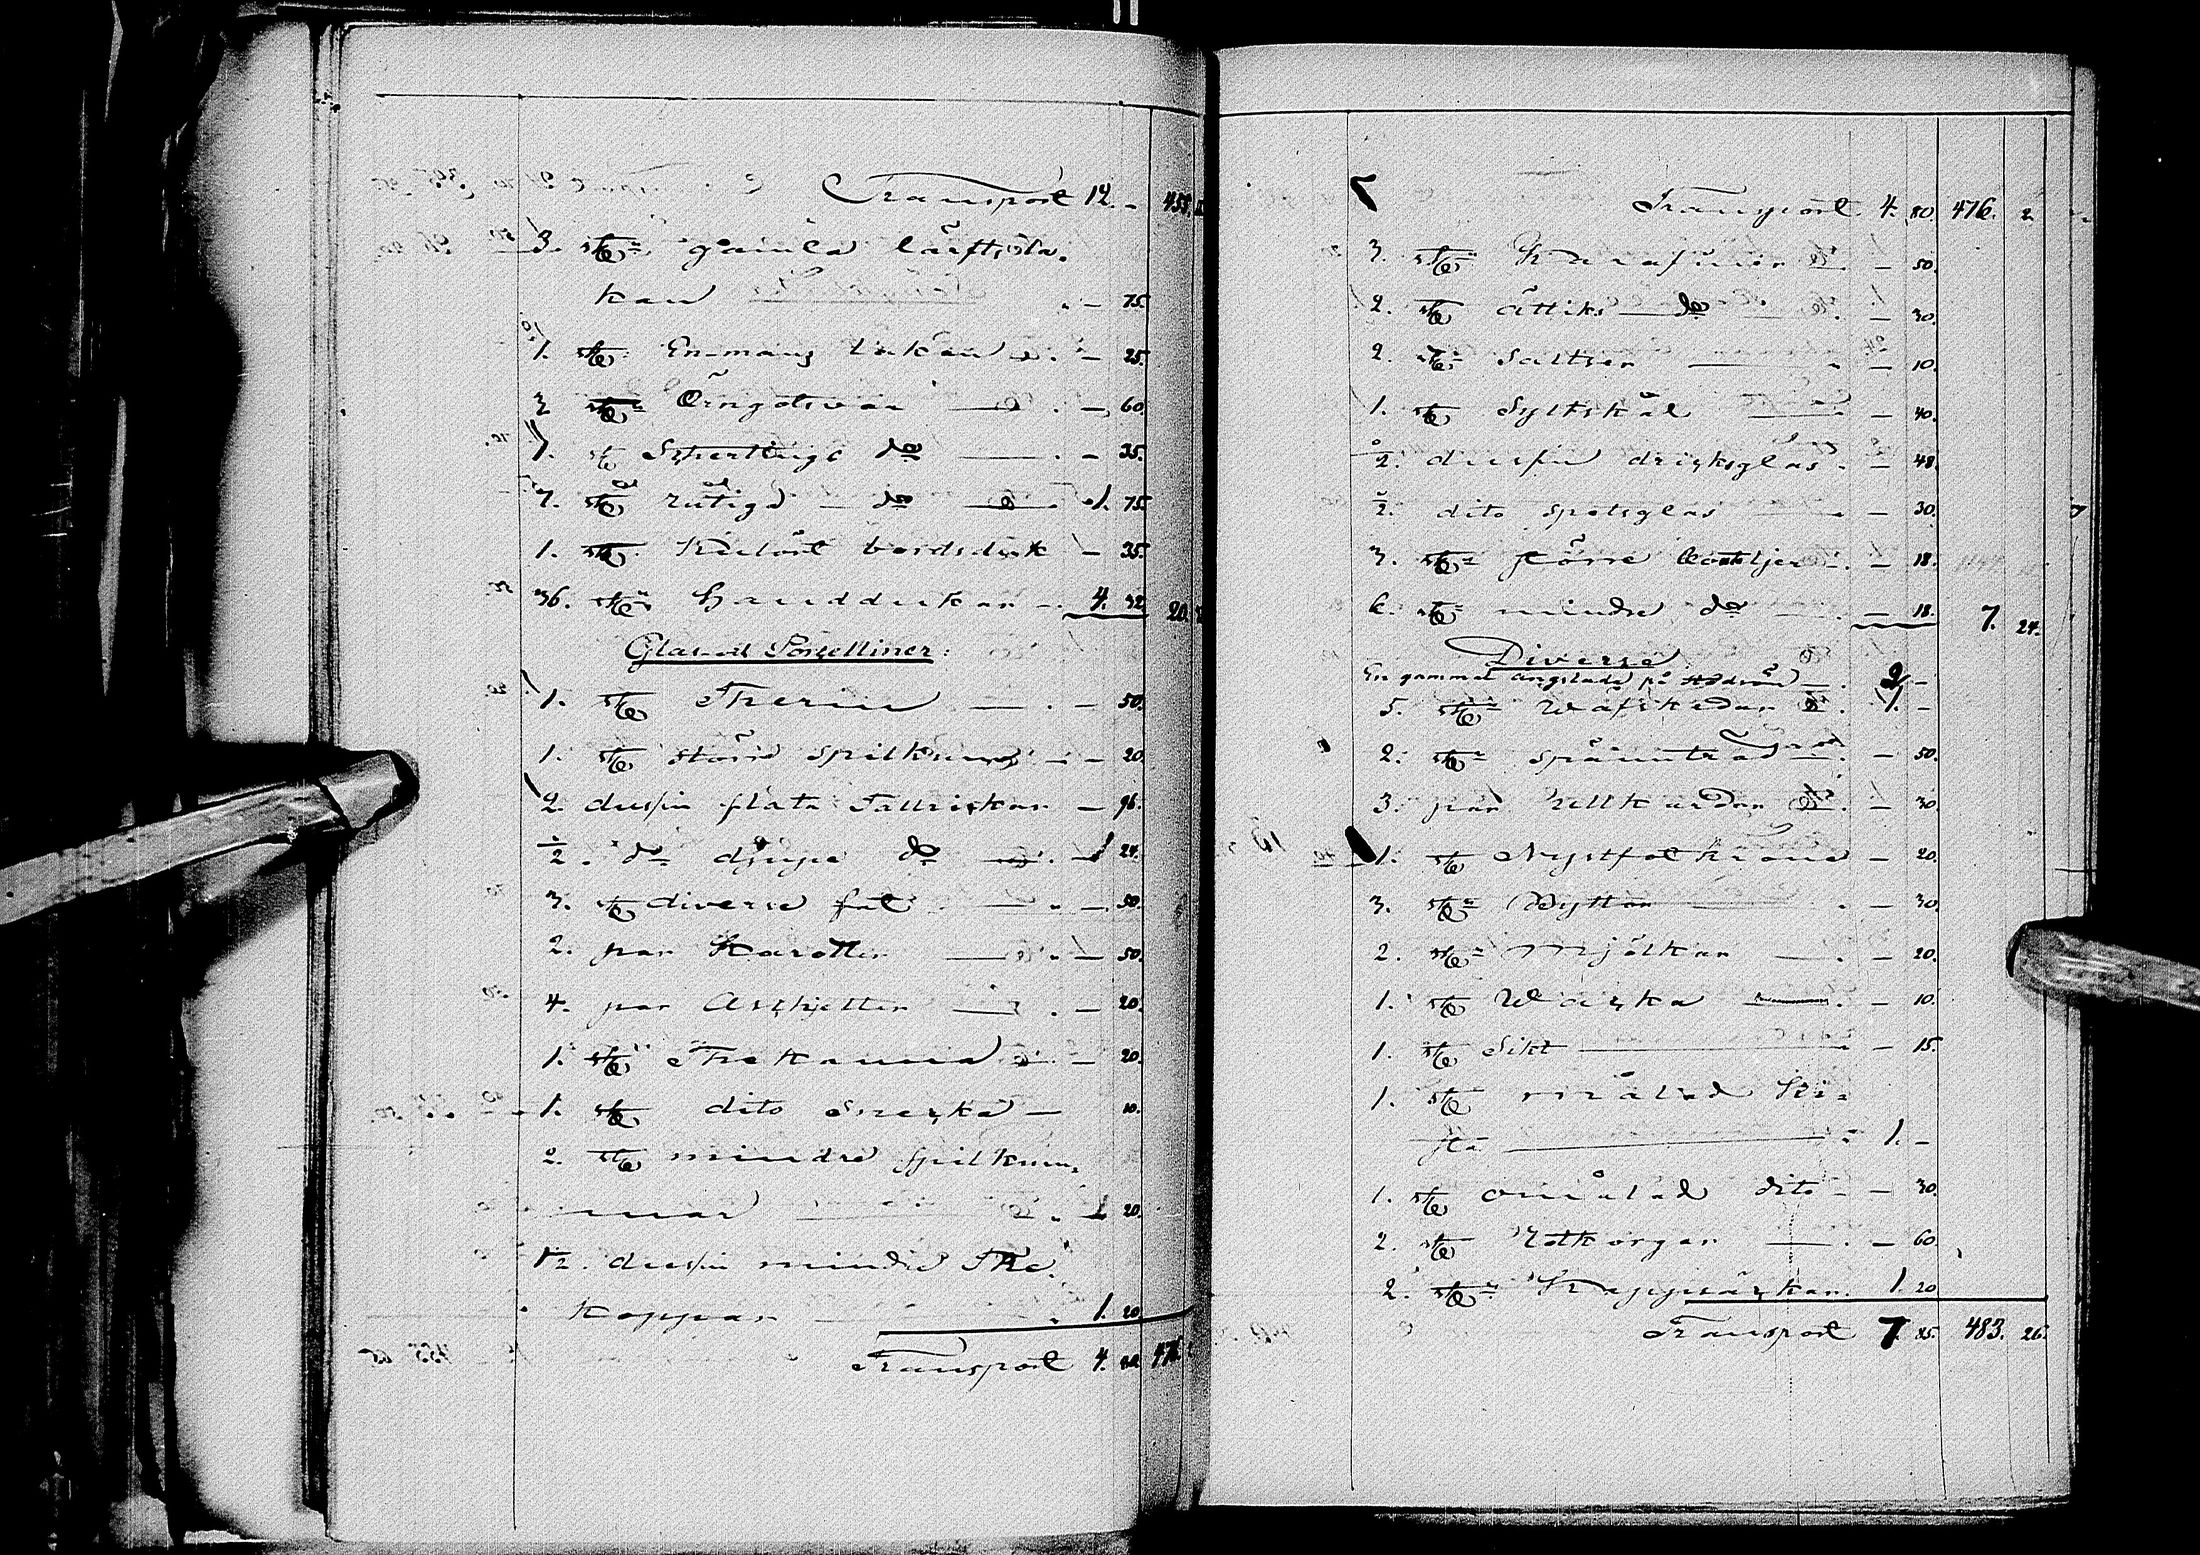 Transport 12. - 455.
3. st:r gamla lärftsla-
kan - 75.
1. st: Enmans lakan - 25.
3 st:r Örngotsvar - 60.
1. st Schertings do - 35.
7. st rutiga do 1. 75.
1. st. bordsduk - 35.
36. st:r Handdukar 4. 32 20.
Glas och Porselliner:
1. st Therin - 50.
1. st större spilkum - 20.
2 dussin flata Tallrickar - 96.
1/2. do djupa do - 24.
3. st diverse fat - 50.
2. par Karotter - 50.
4. par Aschietter - 20.
1. st Thekanna - 20.
1. st dito Snecka - 10.
2. st mindre spilkum-
mar - 20.
1/2. dussin mindre The-
koppar 1. 20.
Transport 4. 80. 476.
Transport 4. 80. 476. 2.
3. st Karafiner - 50.
2. st ättiks do - 30.
2. st:r Saltser - 10.
1. st Syltskål - 40.
1/2. dussin dricksglas - 48.
1/2. dito spetsglas - 30.
3. st:r större Bouteljer - 18.
6. st:r mindre do - 18. 7. 24.
Diverse
En gammal ängslada på 2 -
5. st:r Wäfskedar 1. -
2. st:r spännträd - 50.
3. par Ullkardor - 30.
1. st Nystfotkrona - 20.
3. st:r Byttor - 30.
2. st:r Mjölkar - 20.
1. st Wacka - 10.
1. st Sikt - 15.
1. st målad Ki-
sta 1. -
1. st omålad dito - 30.
2. st Klotkorgar - 60.
2. st:r Kappsäckar 1. 20
Transport 7. 85. 483. 26.